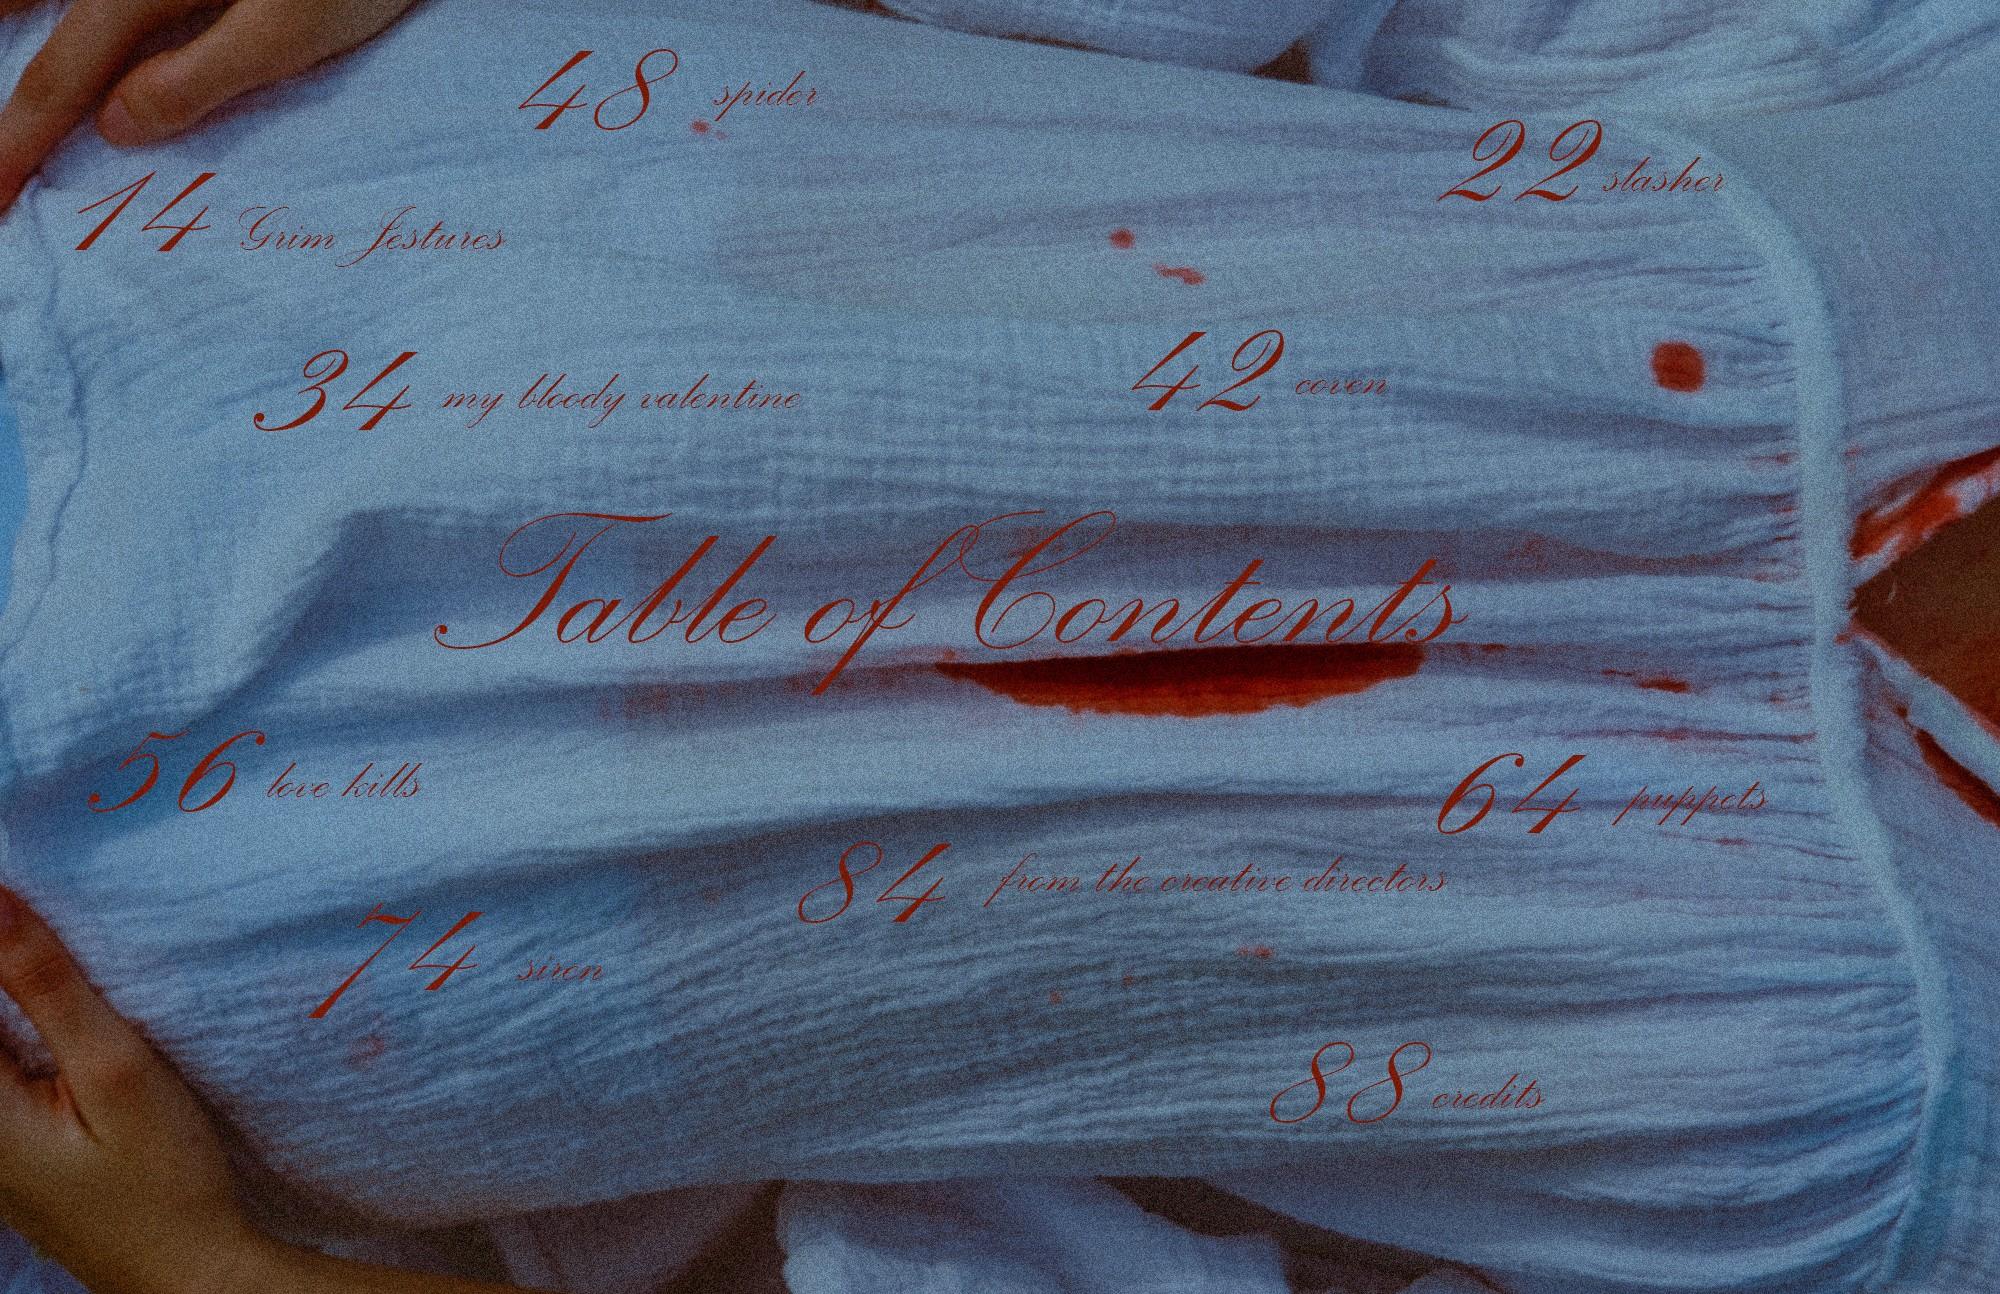 48 spider
22 slasher
14 Grim Jestures
34 my bloody valentine
42 coven
Table of Contents
56 love kills
64 puppets
84 from the creative directors
74 siren
88 credits